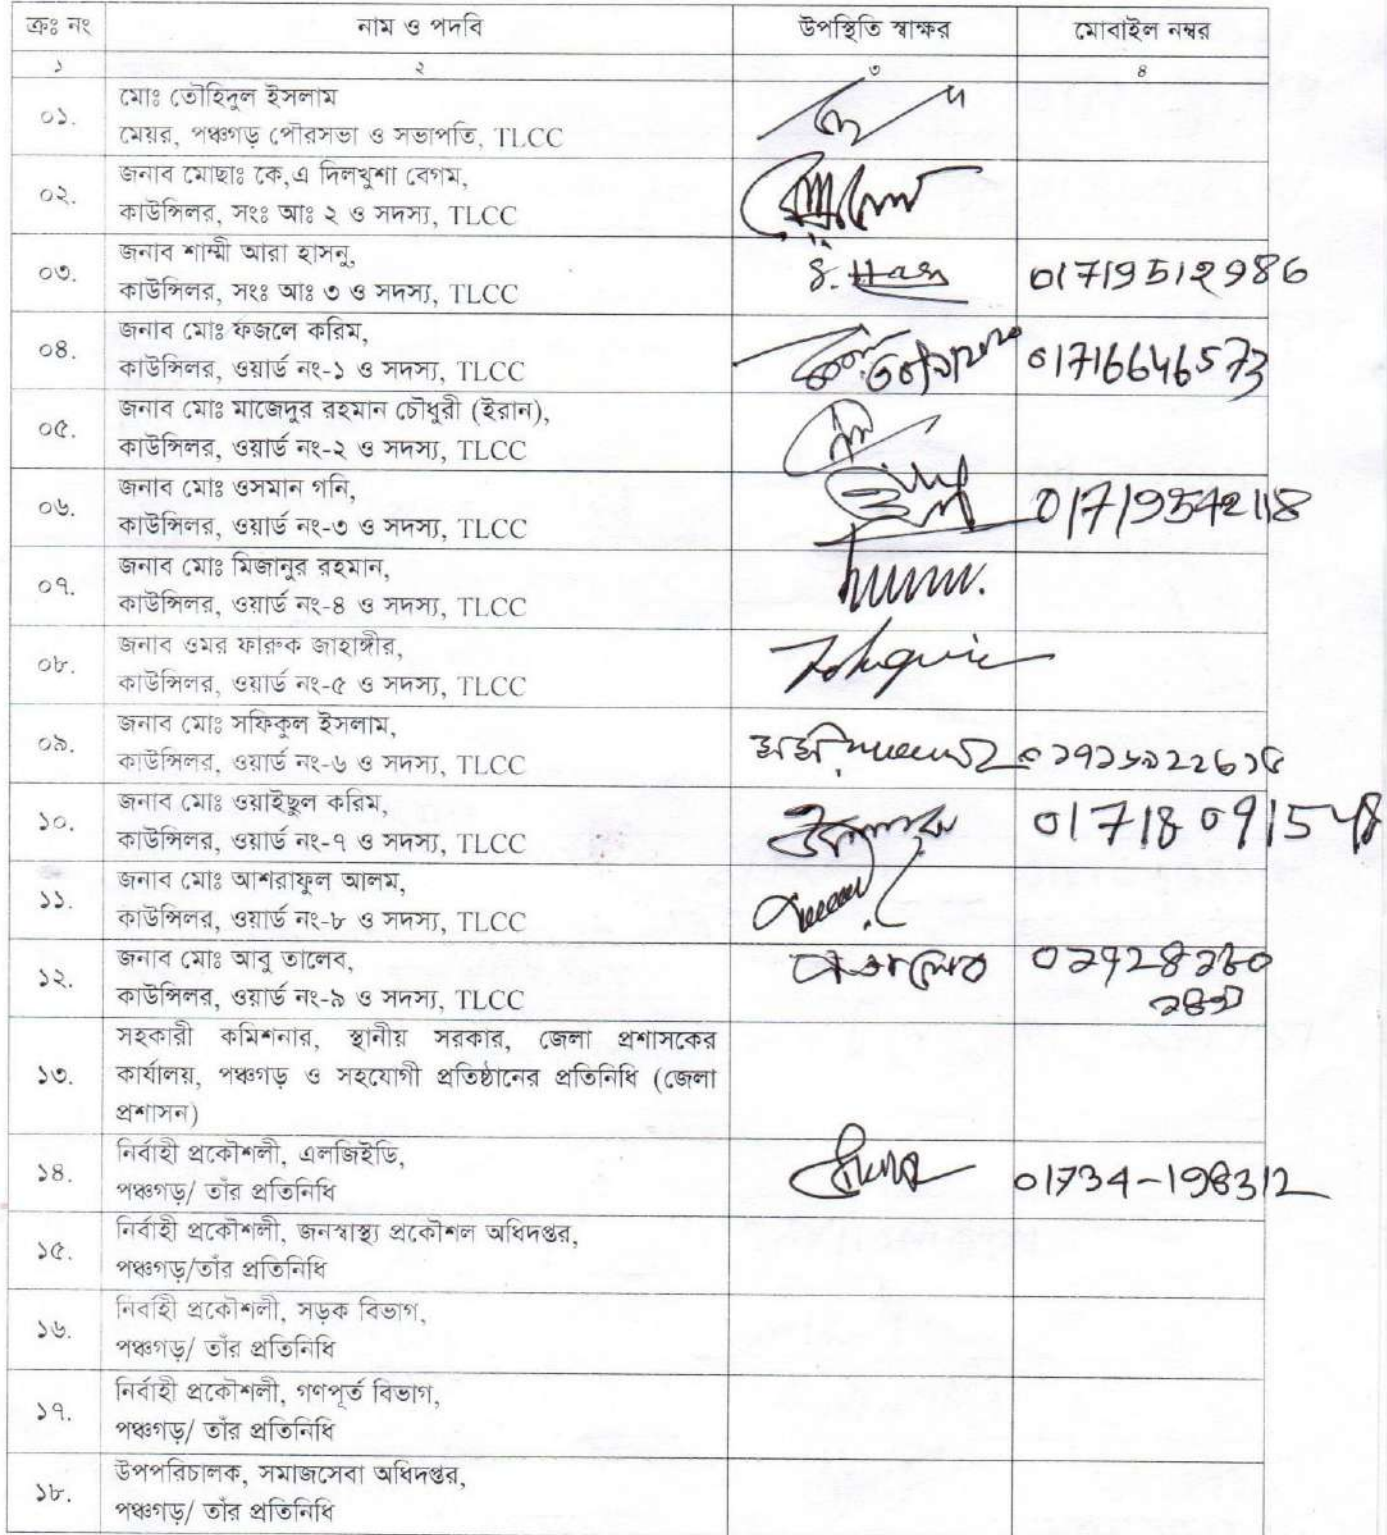 ক্রঃ নং নাম ও পদবি উপস্থিতি স্বাক্ষর মোবাইল নম্বর
১ ২ ৩ ৪
০১. মোঃ তৌহিদুল ইসলাম
মেয়র, পঞ্চগড় পৌরসভা ও সভাপতি, TLCC
০২. জনাব মোছাঃ কে,এ দিলখুশা বেগম,
কাউন্সিলর, সংঃ আঃ ২ ও সদস্য, TLCC
০৩. জনাব শাম্মী আরা হাসনু, S. Hasn 01719512986
কাউন্সিলর, সংঃ আঃ ৩ ও সদস্য, TLCC
০৪. জনাব মোঃ ফজলে করিম, 01716646573
কাউন্সিলর, ওয়ার্ড নং-১ ও সদস্য, TLCC
০৫. জনাব মোঃ মাজেদুর রহমান চৌধুরী (ইরান),
কাউন্সিলর, ওয়ার্ড নং-২ ও সদস্য, TLCC
০৬. জনাব মোঃ ওসমান গনি, 01719542118
কাউন্সিলর, ওয়ার্ড নং-৩ ও সদস্য, TLCC
০৭. জনাব মোঃ মিজানুর রহমান,
কাউন্সিলর, ওয়ার্ড নং-৪ ও সদস্য, TLCC
০৮. জনাব ওমর ফারুক জাহাঙ্গীর,
কাউন্সিলর, ওয়ার্ড নং-৫ ও সদস্য, TLCC
০৯. জনাব মোঃ সফিকুল ইসলাম,
কাউন্সিলর, ওয়ার্ড নং-৬ ও সদস্য, TLCC
১০. জনাব মোঃ ওয়াইছুল করিম, 01718091548
কাউন্সিলর, ওয়ার্ড নং-৭ ও সদস্য, TLCC
১১. জনাব মোঃ আশরাফুল আলম,
কাউন্সিলর, ওয়ার্ড নং-৮ ও সদস্য, TLCC
১২. জনাব মোঃ আবু তালেব,
কাউন্সিলর, ওয়ার্ড নং-৯ ও সদস্য, TLCC
সহকারী কমিশনার, স্থানীয় সরকার, জেলা প্রশাসকের
১৩. কার্যালয়, পঞ্চগড় ও সহযোগী প্রতিষ্ঠানের প্রতিনিধি (জেলা
প্রশাসন)
১৪. নির্বাহী প্রকৌশলী, এলজিইডি, 01734-198312
পঞ্চগড়/ তাঁর প্রতিনিধি
১৫. নির্বাহী প্রকৌশলী, জনস্বাস্থ্য প্রকৌশল অধিদপ্তর,
পঞ্চগড়/তাঁর প্রতিনিধি
১৬. নির্বাহী প্রকৌশলী, সড়ক বিভাগ,
পঞ্চগড়/ তাঁর প্রতিনিধি
১৭. নির্বাহী প্রকৌশলী, গণপূর্ত বিভাগ,
পঞ্চগড়/ তাঁর প্রতিনিধি
১৮. উপপরিচালক, সমাজসেবা অধিদপ্তর,
পঞ্চগড়/ তাঁর প্রতিনিধি